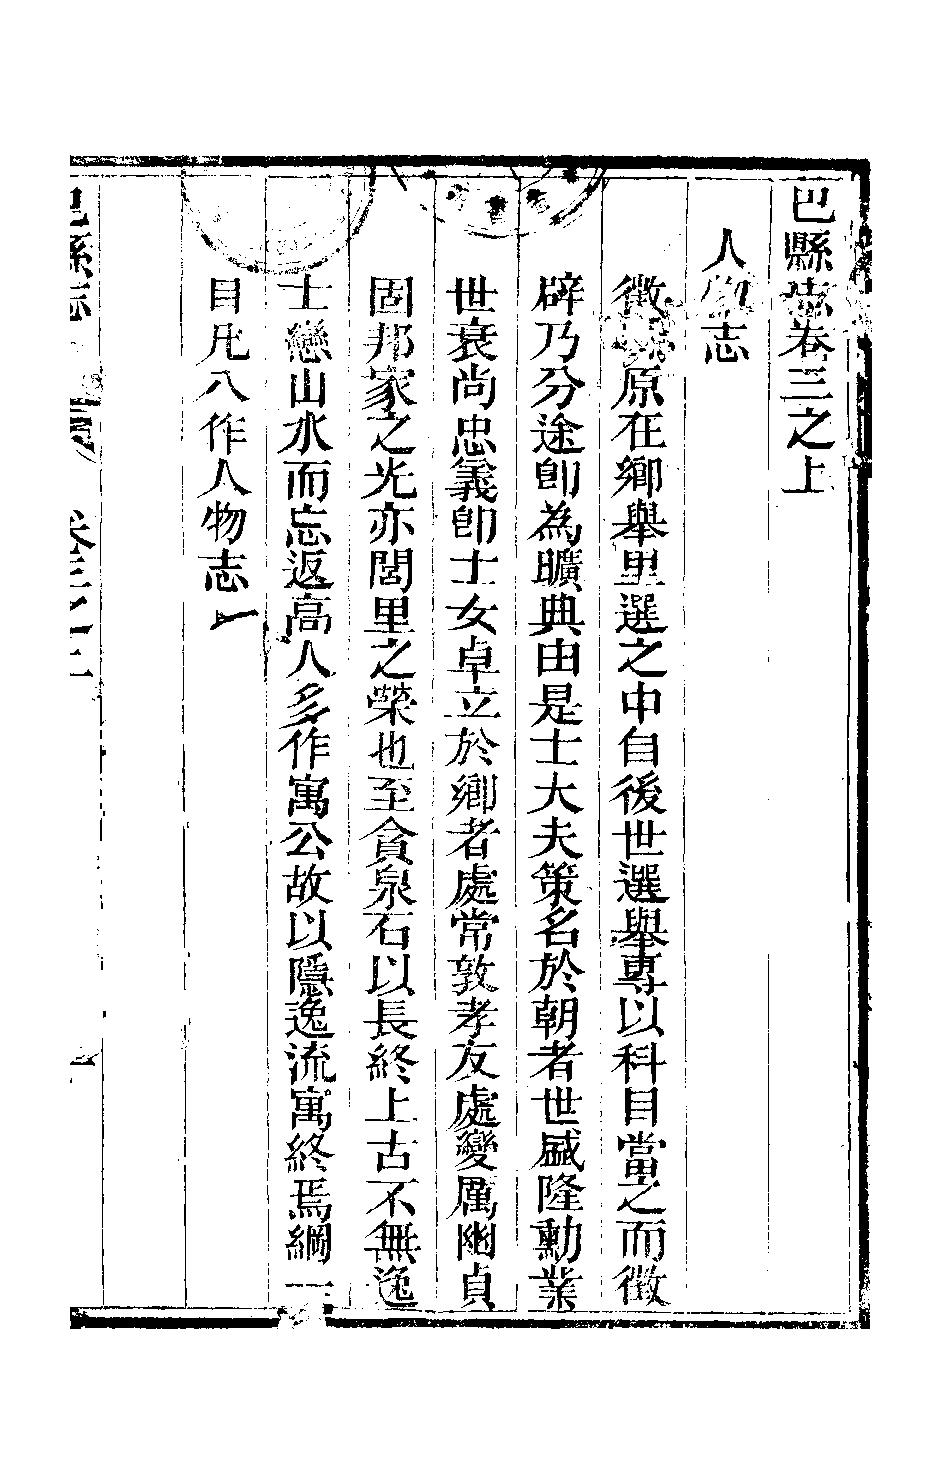 巴縣志卷三之上
人物志
徵辟原在鄉舉里選之中自後世選舉專以科目當之而徵
辟乃分途卽為曠典由是士大夫策名於朝者世盛隆勳業
世衰尚忠義卽士女卓立於鄉者處常敦孝友處變厲幽貞
固邦家之光亦閭里之榮也至貪泉石以長終上古不無逸
士戀山水而忘返高人多作寓公故以隱逸流寓終焉綱一
目凡八作人物志
巴縣志 卷三之上 一